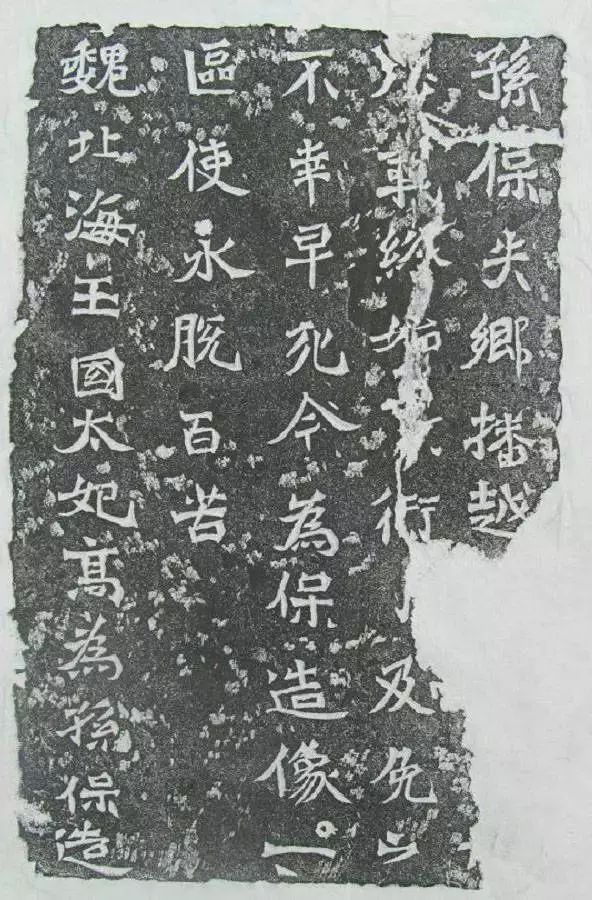 孫保失鄉播越
終始衍及免
不幸早死今為保造像一
區使永脫百苦
魏北海王國太妃高為孫保造